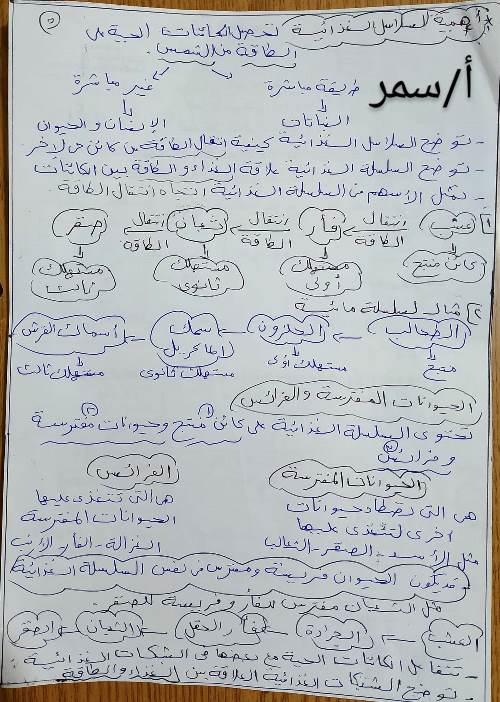 * أهمية السلاسل الغذائية تحصل الكائنات الحية على
الطاقة من الشمس
طريقة مباشرة غير مباشرة
أ/سمر
النباتات الإنسان والحيوان
- توضح السلاسل الغذائية كيفية انتقال الطاقة من كائن حى لآخر
- توضح السلسلة الغذائية علاقة الغذاء والطاقة بين الكائنات
- تمثل الأسهم من السلسلة الغذائية اتجاه انتقال الطاقة
1 عشب انتقال الطاقة فأر انتقال الطاقة ثعبان انتقال الطاقة صقر
كائن منتج مستهلك أولى مستهلك ثانوى مستهلك ثالث
2 مثال لسلسلة مائية
الطحالب الحلزون سمك أسماك القرش
منتج مستهلك أولى مستهلك ثانوى مستهلك ثالث
الحيوانات المفترسة والفرائس
تحتوى السلسلة الغذائية على كائن منتج وحيوانات مفترسة
وفرائس
الحيوانات المفترسة الفرائس
هى التى تصطاد حيوانات هى التى تتغذى عليها
اخرى لتتغذى عليها الحيوانات المفترسة
مثل الأسد - الصقر - الثعالب الغزالة - الفأر - الأرنب
- قد يكون الحيوان فريسة ومفترس فى نفس السلسلة الغذائية
مثل الثعبان مفترس للفأر وفريسة للصقر
العشب الجرادة فأر الحقل الثعبان الصقر
- تتفاعل الكائنات الحية مع بعضها فى الشبكات الغذائية
- توضح الشبكات الغذائية العلاقة بين الغذاء والطاقة